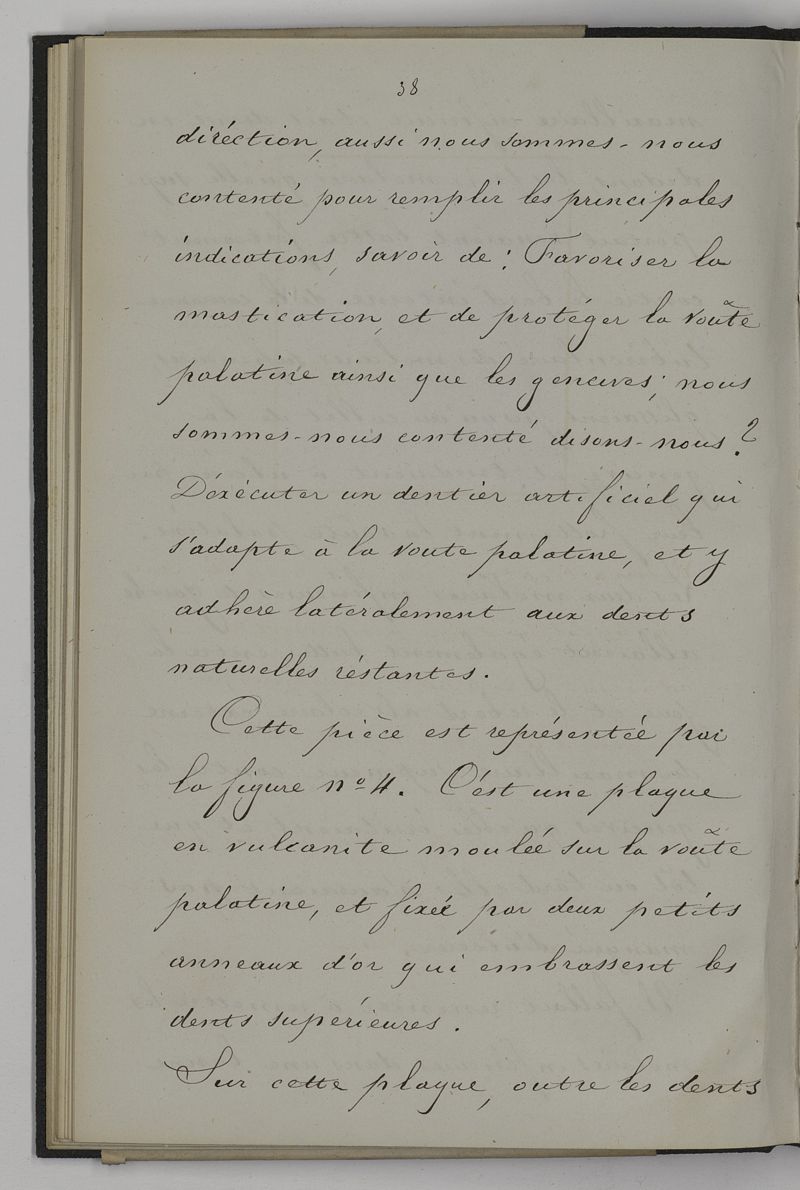 38
diréction, aussi nous sommes-nous
contenté pour remplir les principales
indications, savoir de: Favoriser la
mastication, et de protéger la voûte
palatine ainsi que les gencives; nous
sommes-nous contenté disons-nous?
D'éxécuter un dentier artificiel qui
s'adapte à la voute palatine, et y
adhère latéralement aux dents
naturelles réstantes.
Cette pièce est représentée par
la figure nº 4. C'est une plaque
en vulcanite moulée sur la voûte
palatine, et fixée par deux petits
anneaux d'or qui embrassent les
dents supérieures.
Sur cette plaque, outre les dents